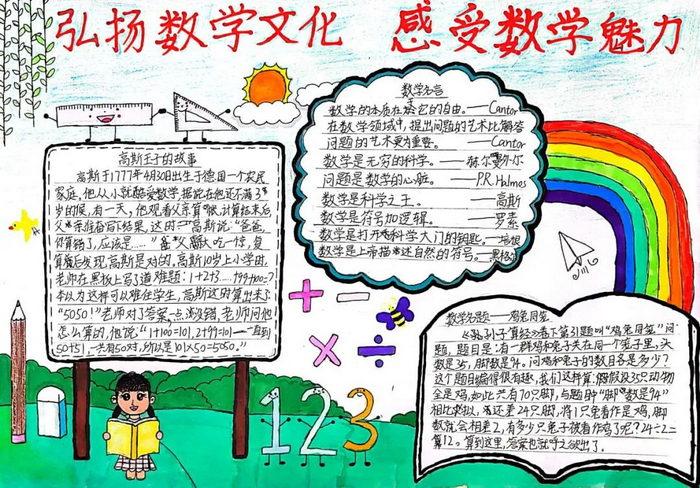 弘扬数学文化 感受数学魅力
高斯王子的故事
高斯于1777年4月30日出生于德国一个农民
家庭，他从小就酷爱数学，据说在他还不满3
岁的时候，有一天，他观看父亲算账，计算结束后，
父亲准备写结果，这时高斯说："爸爸，
你算错了，应该是……"父亲大吃一惊，复
算后发现高斯是对的，高斯10岁上小学时，
老师在黑板上写了道难题：1+2+3……+99+100=?
本以为这样可以难住学生，高斯这时算出来了
"5050!"老师对了答案，一点没错，老师问他
怎么算的，他说"1+100=101，2+99=101……一直到
50+51，一共有50对，所以是101×50=5050。"
数学名言
数学的本质在于它的自由。——Cantor
在数学领域中，提出问题的艺术比解答
问题的艺术更为重要。——Cantor
数学是无穷的科学。——赫尔曼外尔
问题是数学的心脏。——P.R.Halmos
数学是科学之王。——高斯
数学是符号加逻辑。——罗素
数学是打开科学大门的钥匙。——培根
数学是上帝描述自然的符号。——黑格尔
+ −
× ÷
123
数学名题——鸡兔同笼
《孙子算经》卷下第31题叫"鸡兔同笼"问
题，题目是：有一群鸡和兔子在同一个笼子里，头
数是35，脚数是94。问鸡和兔子的数目各是多少？
这个题目编得很有趣，我们这样算：假设35只动物
全是鸡，如此共有70只脚，与题目中"脚数是94"
相比较，还差24只脚，将1只兔看作是鸡，脚
数就会相差2，有多少只兔子被看作鸡了呢？24÷2=
12。算到这里，答案也就呼之欲出了。